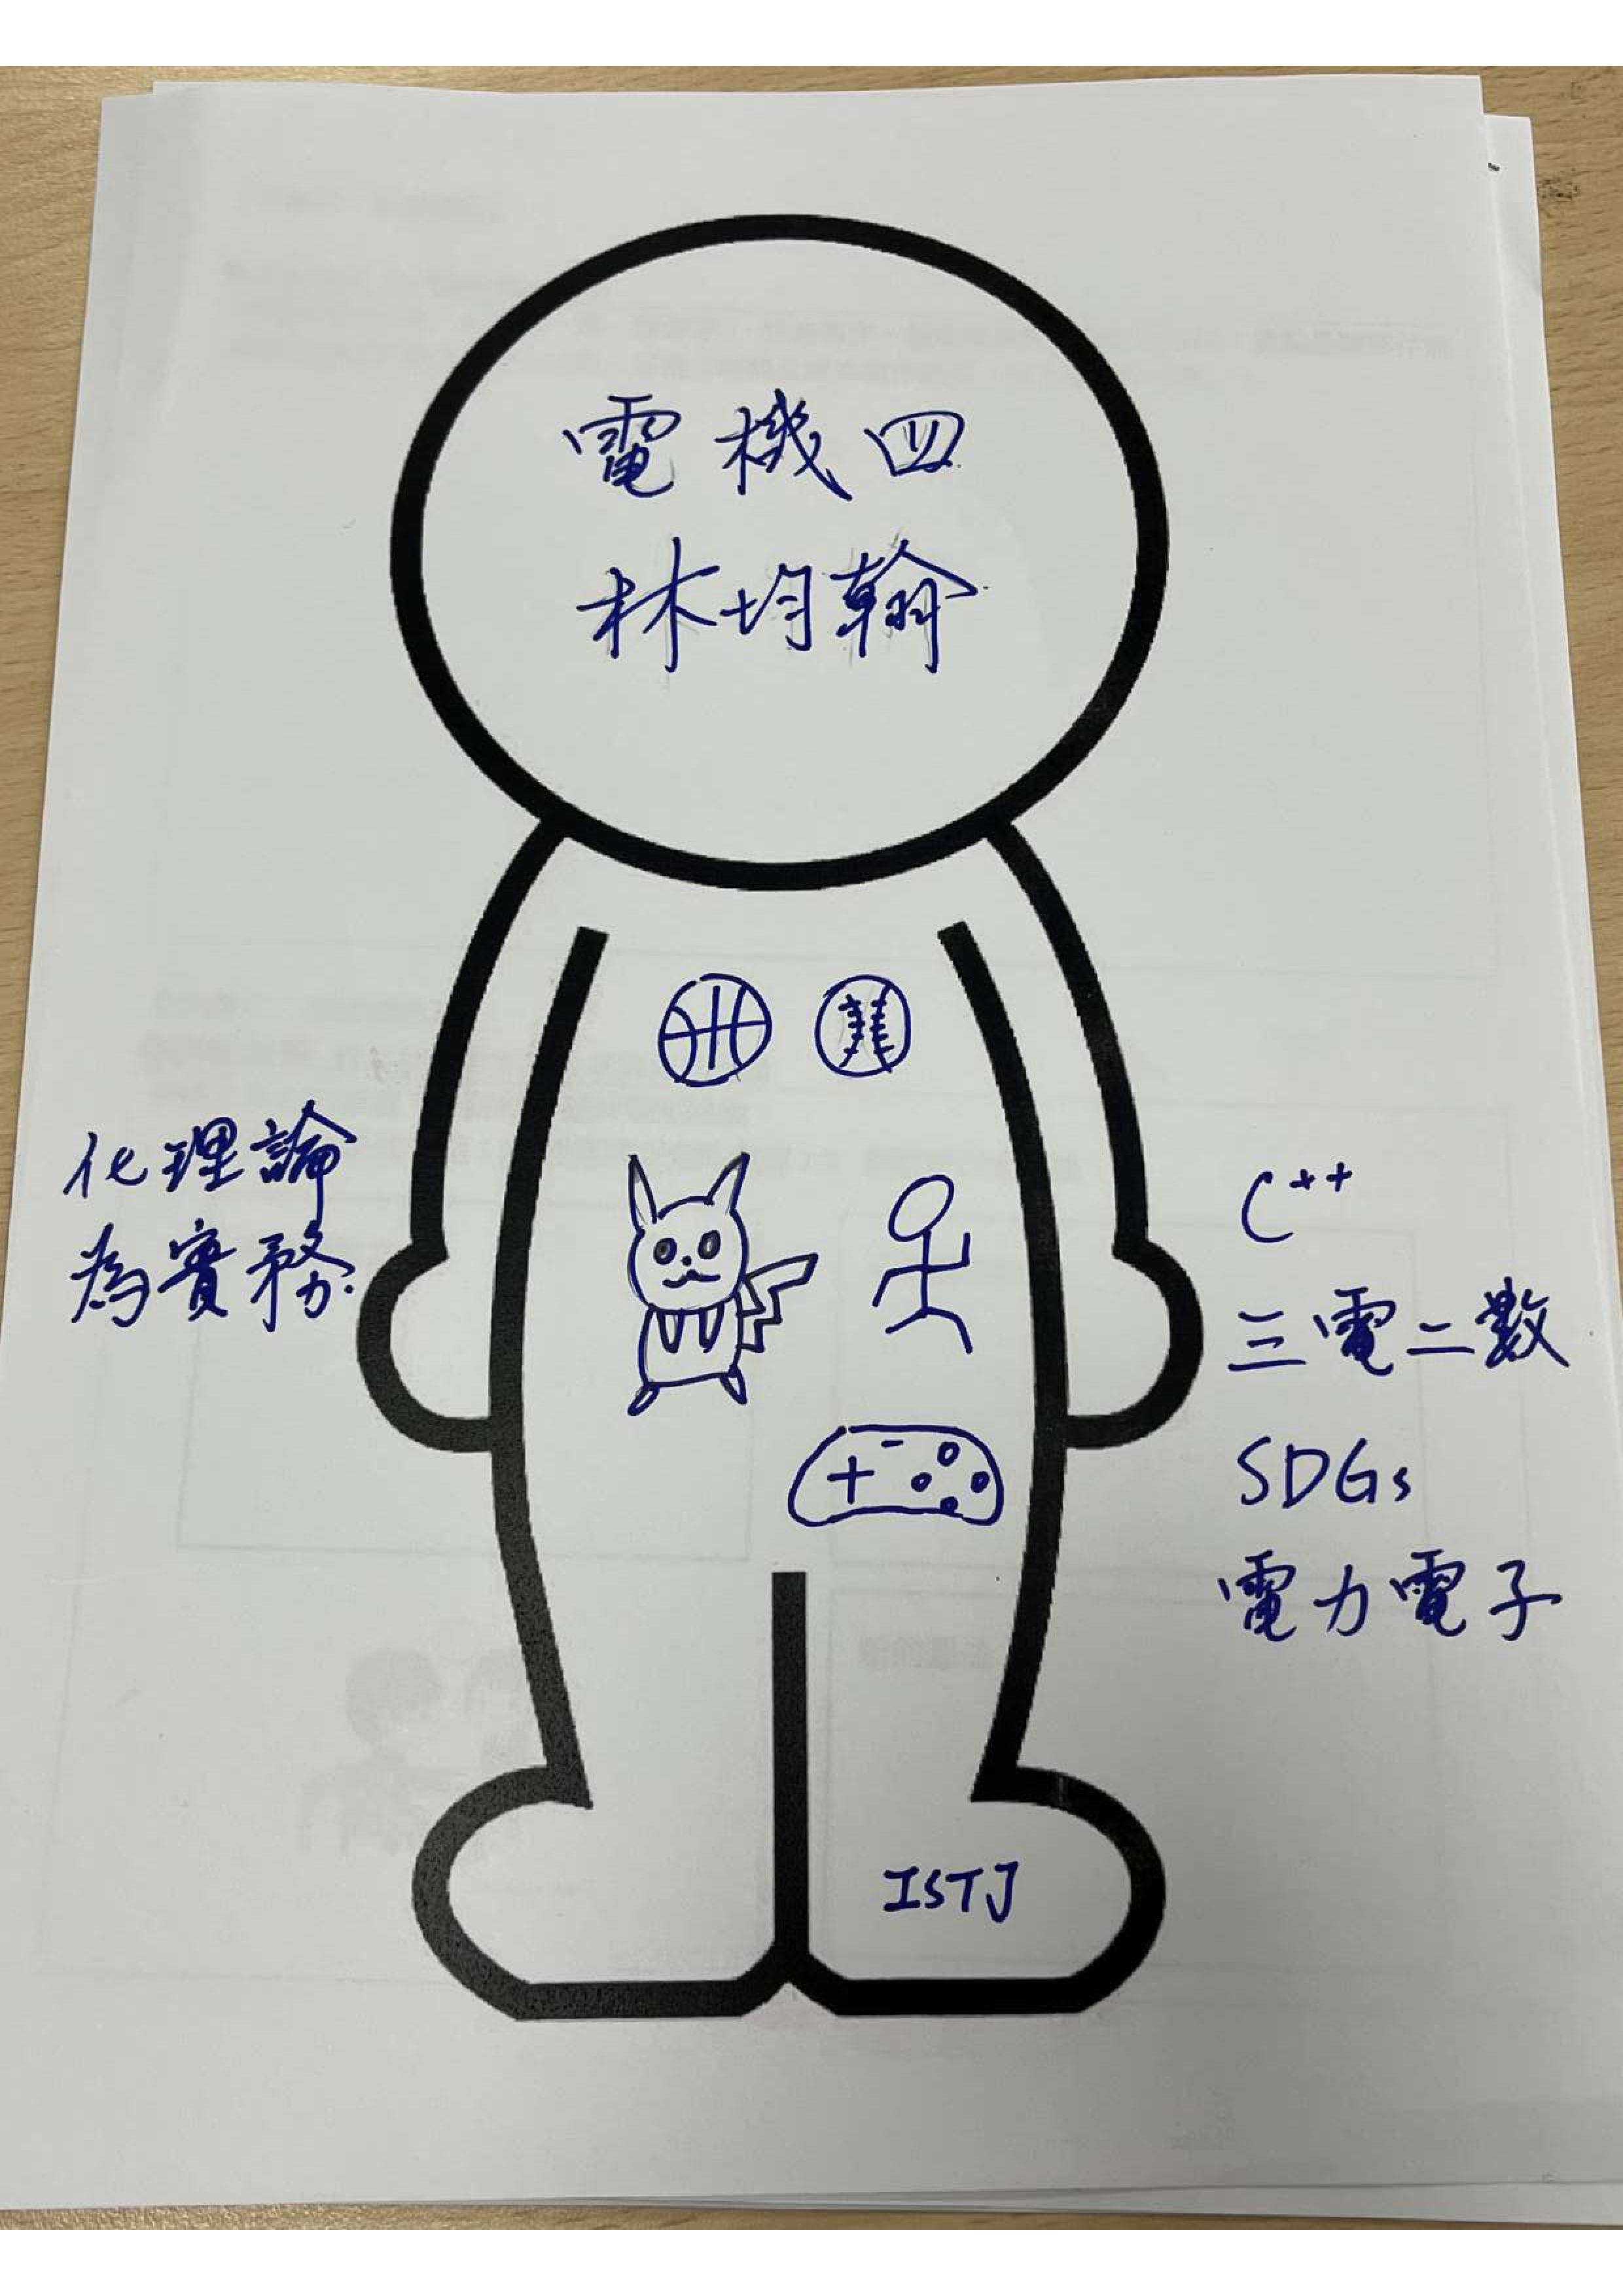 電機四
林均翰
化理論
為實務
C++
三電二數
SDGs
電力電子
ISTJ